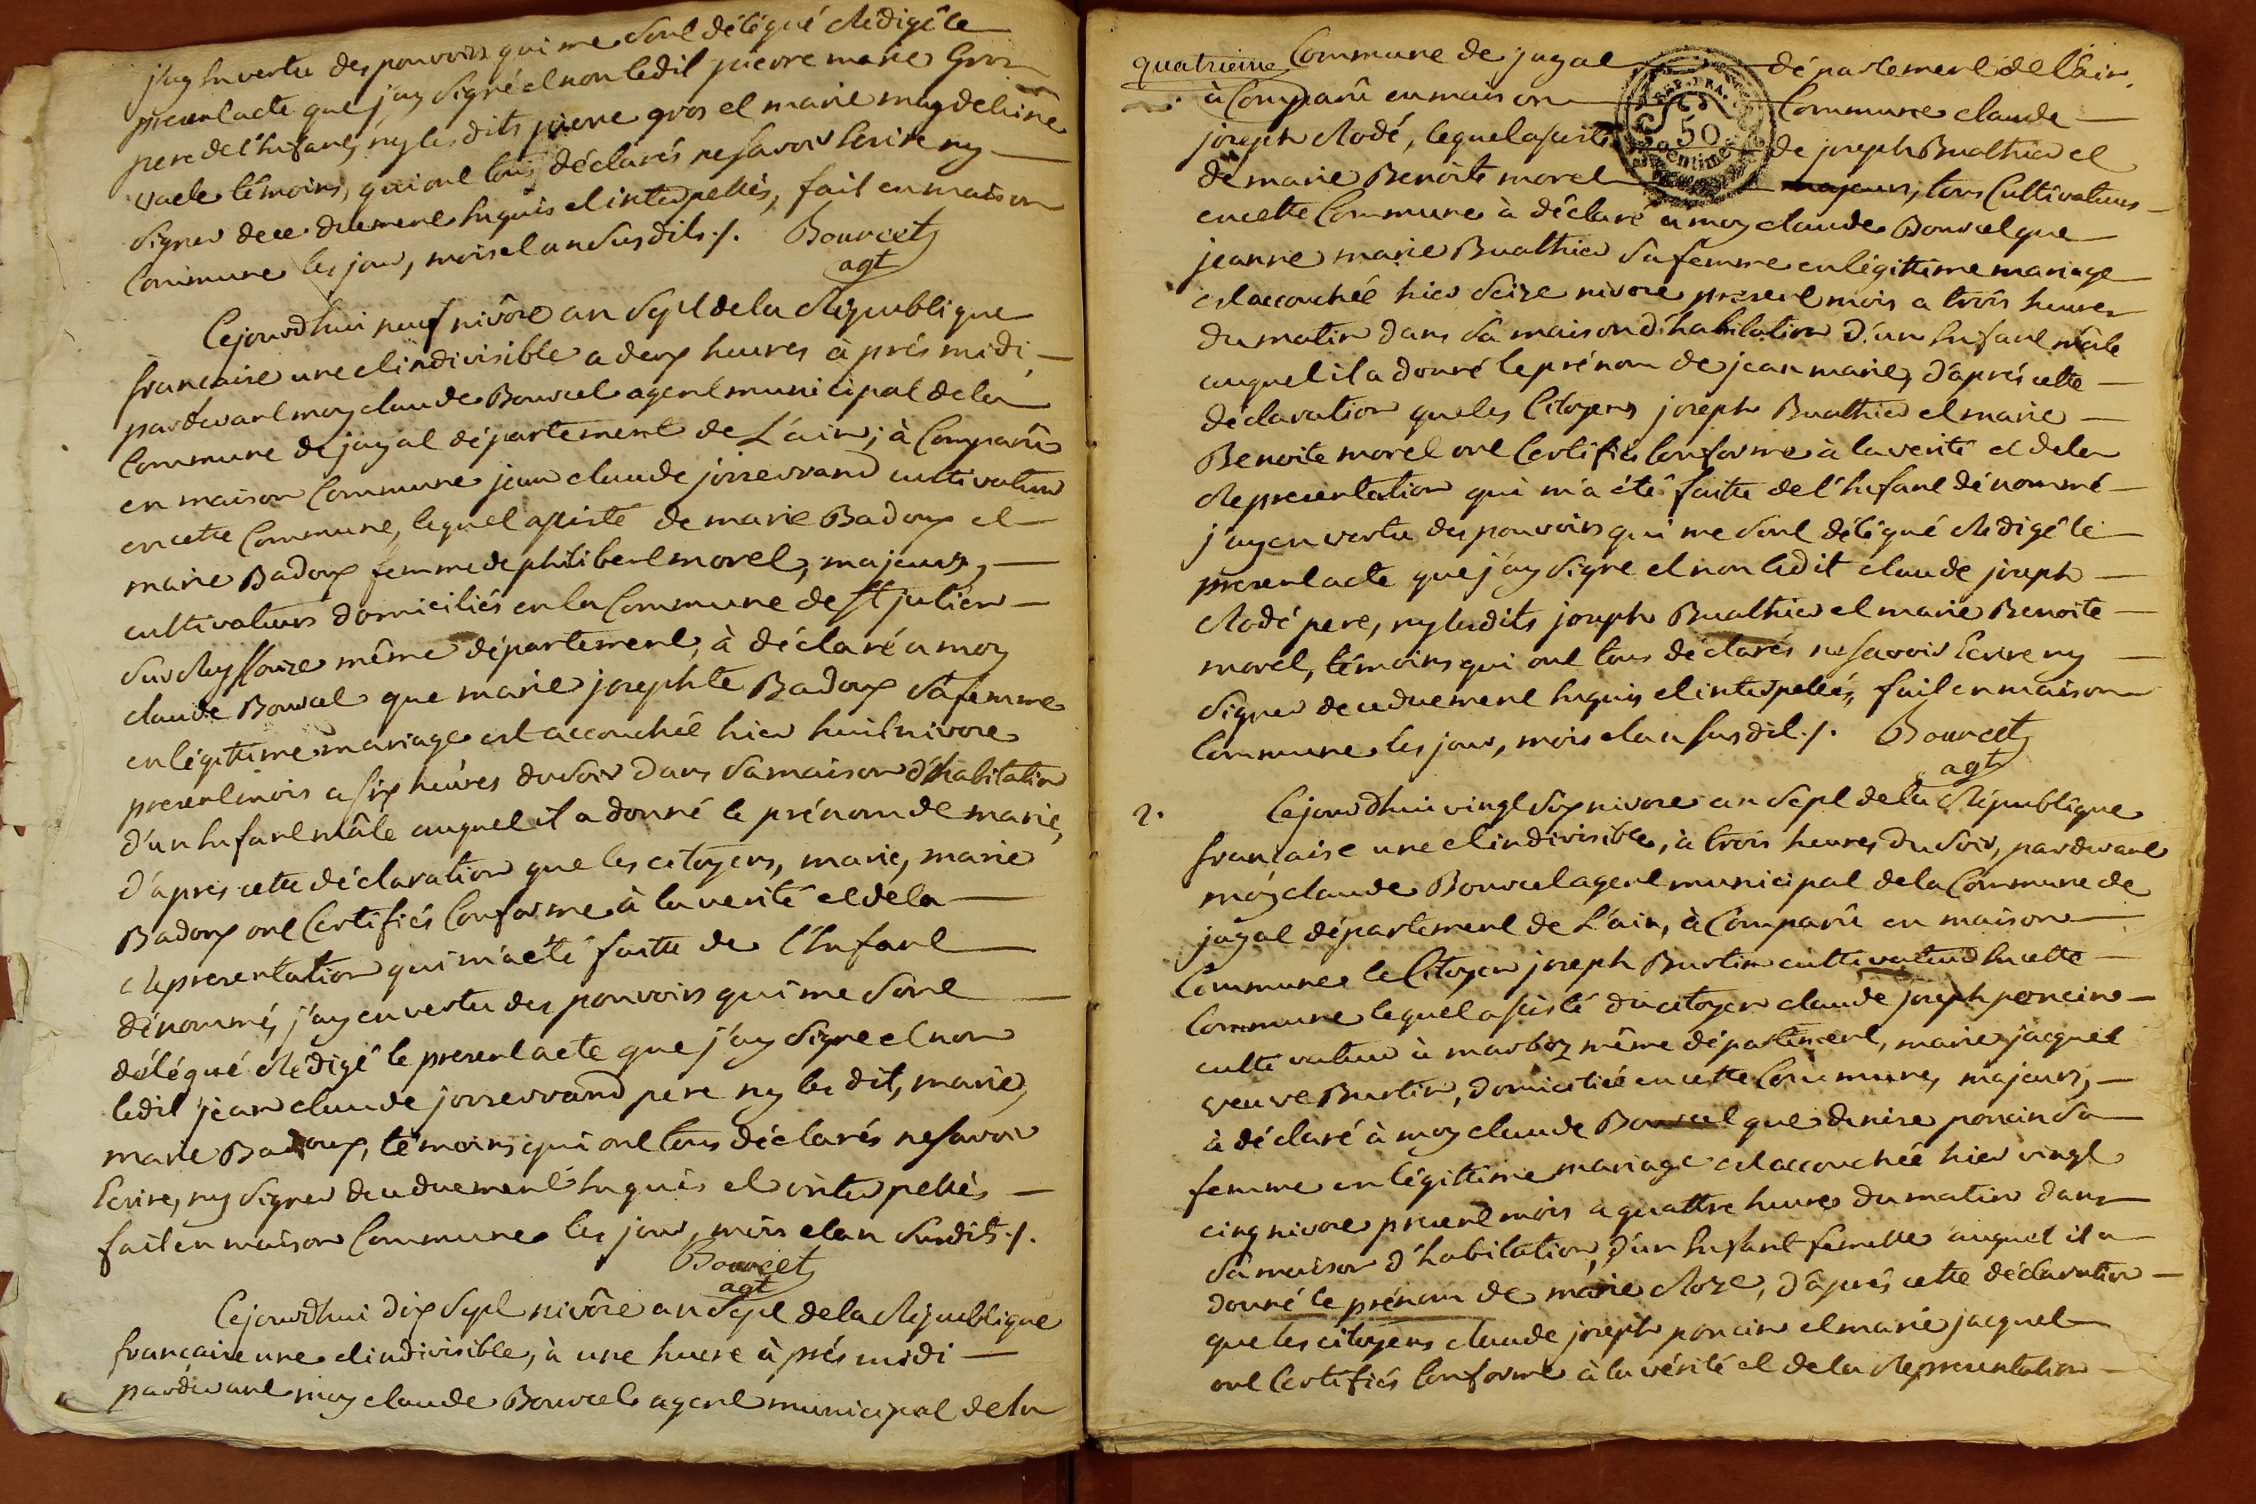 j'ay En vertu des pouvoirs qui me sont délégué Rédigé le
present acte que j'ay signé et non ledit pierre marie Gros
pere de l'Enfant, ny les dits pierre gros et marie magdelaine
témoins, qui ont tous déclarés ne savoir Ecrire ny
signer de ce duement Enquis et interpellés, fait en maison
Commune les jour, mois et an susdits ./. Bourcet
agt
Cejourdhui neuf nivôse an sept de la République
francaise une et indivisible a deux heures à prés midi,
pardevant moy claude Bourcet agent municipal de la
Commune de jayat département de L'ain, à Comparû
en maison Commune jean claude josserrand cultivateur
en cette Commune, lequel assisté de marie Badoux et
marie Badoux femme de philibert morel, majeurs,
cultivateurs domiciliés en la Commune de St julien
sur Reyssouze même département, à déclaré a moy
claude Bourcet que marie josephte Badoux sa femme
en légitime mariage est accouchée hier huit nivose
present mois a six heures du soir dans sa maison d'habitation
d'un Enfant mâle auquel il a donné le prénom de marie,
d'apres cette déclaration que les citoyens, marie, marie
Badoux ont Certifiés Conforme à la verité et de la
Representation qui m'a été faitte de l'Enfant
dénommé, j'ay en vertu des pouvoirs qui me sont
délégué Rédigé le present acte que j'ay signe et non
ledit jean claude josserrand pere ny les dit, marie,
marie Badoux, témoins qui ont tous déclarés ne savoir
Ecrire, ny signer de ce duement Enquis et interpellés
fait en maison Commune les jour, mois et an susdits ./.
Bourcet
agt
Cejourdhui dix sept nivôse an sept de la République
francaise une et indivisible, à une heure à prés midi
pardevant moy claude Bourcet agent municipal de la
quatrieme Commune de jayat département de L'ain,
à Comparû en maison Commune claude
joseph Rodé, lequel assisté de joseph Buathier et
de marie Benoite morel majeurs, tous Cultivateurs
en cette Commune à déclaré a moy claude Bourcet que
jeanne marie Buathier sa femme en légittime mariage
est accouchée hier seize nivose present mois a trois heures
du matin dans sa maison d'habitation d'un Enfant mâle
auquel il a donné le prénom de jean marie, d'aprés cette
déclaration que les Citoyens joseph Buathier et marie
Benoite morel ont Certifiés Conforme à la verité et de la
Representation qui m'a été faitte de l'Enfant dénommé
j'ay en vertu des pouvoirs qui me sont délégué Rédigé le
present acte que j'ay signe et non ledit claude joseph
Rodé pere, ny les dits joseph Buathier et marie Benoite
morel, témoins qui ont tous déclarés ne savoir Ecrire ny
signer de ce duement Enquis et interpellés, fait en maison
Commune les jour, mois et an susdit ./. Bourcet
agt
2. Cejourdhui vingt six nivose an sept de la République
francaise une et indivisible, à trois heures du soir, pardevant
moy claude Bourcet agent municipal de la Commune de
jayat département de L'ain, à Comparû en maison
Commune le Citoyen joseph Burtin cultivateur En cette
Commune lequel assisté du citoyen claude joseph poncin
cultivateur à marboz même département, marie jacquet
veuve Burtin, domiciliée en cette Commune, majeurs,
à déclaré à moy claude Bourcet que denise poncin sa
femme en légittime mariage est accouchée hier vingt
cinq nivose present mois a quattre heures du matin dans
sa maison d'habitation, d'un Enfant femelle auquel il a
donné le prénom de marie Roze, d'aprés cette déclaration
que les citoyens claude joseph poncin et marie jacquet
ont Certifiés Conforme à la vérité et de la Representation
REP. FRA.
50
centimes